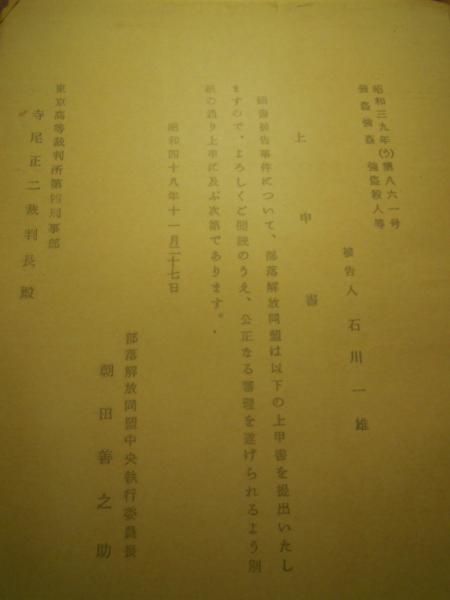 昭和三九年(う)第八六一号
強盗強姦 強盗殺人等
被告人 石川一雄
上申書
頭書被告事件について、部落解放同盟は以下の上申書を提出いたし
ますので、よろしくご閲読のうえ、公正なる審理を遂げられるよう別
紙の通り上申に及ぶ次第であります。
昭和四十八年十一月二十七日
部落解放同盟中央執行委員長
朝田善之助
東京高等裁判所第四刑事部
寺尾正二裁判長殿